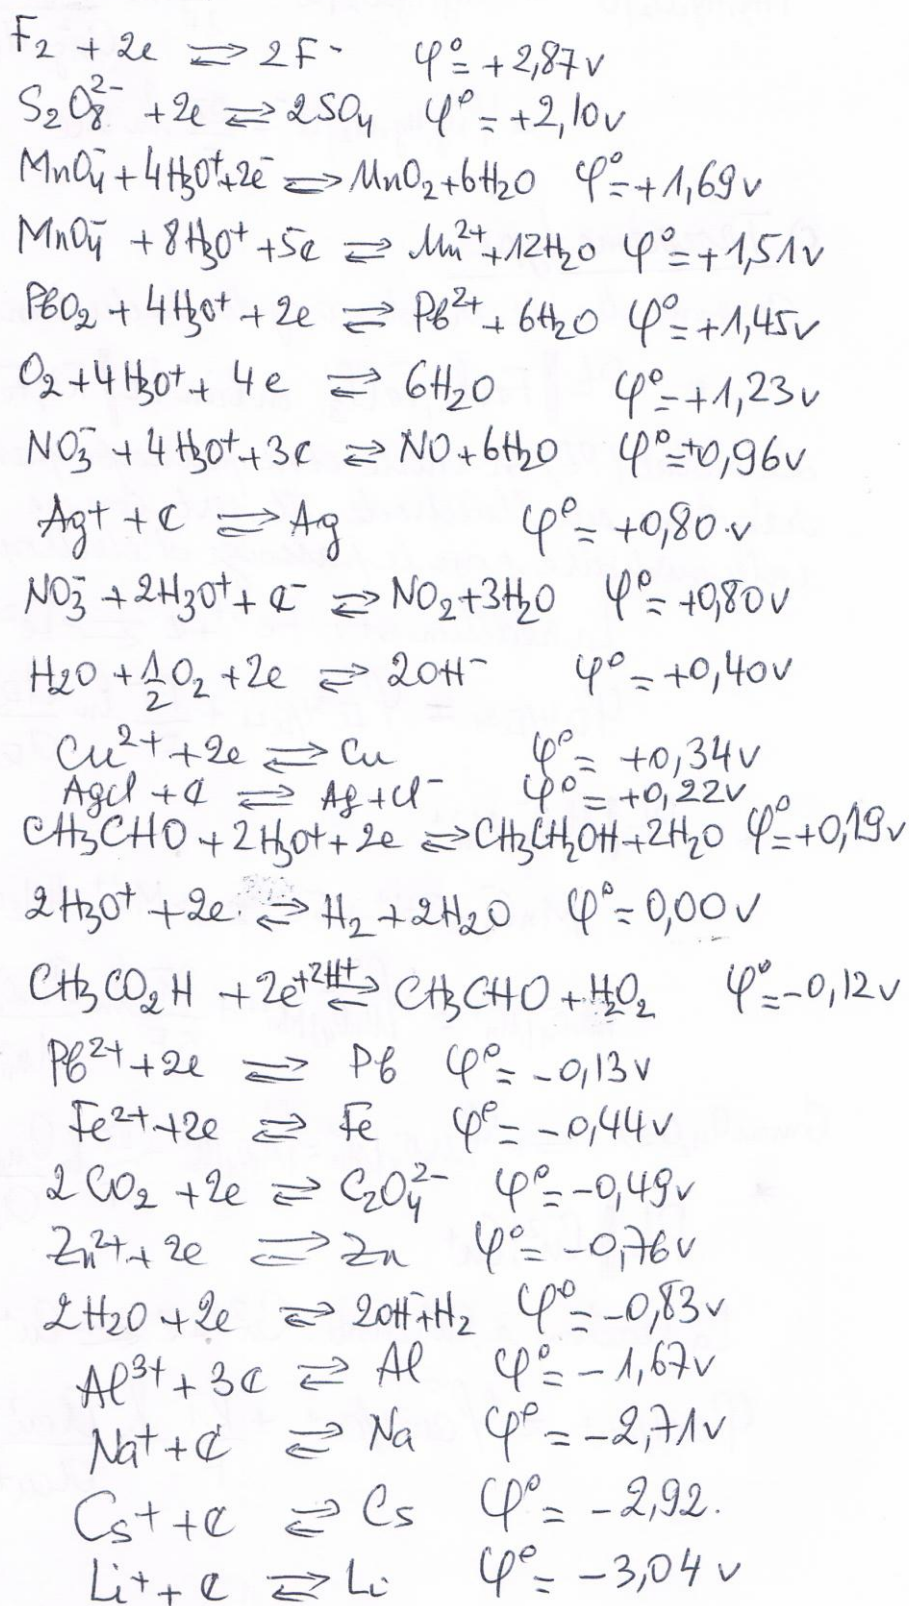 F₂ + 2e ⇌ 2F⁻ φ° = +2,87v
S₂O₈²⁻ + 2e ⇌ 2SO₄ φ° = +2,10v
MnO₄⁻ + 4H₃O⁺ + 2e⁻ ⇌ MnO₂ + 6H₂O φ° = +1,69v
MnO₄⁻ + 8H₃O⁺ + 5e ⇌ Mn²⁺ + 12H₂O φ° = +1,51v
PbO₂ + 4H₃O⁺ + 2e ⇌ Pb²⁺ + 6H₂O φ° = +1,45v
O₂ + 4H₃O⁺ + 4e ⇌ 6H₂O φ° = +1,23v
NO₃⁻ + 4H₃O⁺ + 3e ⇌ NO + 6H₂O φ° = +0,96v
Ag⁺ + e ⇌ Ag φ° = +0,80v
NO₃⁻ + 2H₃O⁺ + e⁻ ⇌ NO₂ + 3H₂O φ° = +0,80v
H₂O + 1/2 O₂ + 2e ⇌ 2OH⁻ φ° = +0,40v
Cu²⁺ + 2e ⇌ Cu φ° = +0,34v
AgCl + e ⇌ Ag + Cl⁻ φ° = +0,22v
CH₃CHO + 2H₃O⁺ + 2e ⇌ CH₃CH₂OH + 2H₂O φ° = +0,19v
2H₃O⁺ + 2e ⇌ H₂ + 2H₂O φ° = 0,00v
CH₃CO₂H + 2e +2H⁺ ⇌ CH₃CHO + H₂O₂ φ° = -0,12v
Pb²⁺ + 2e ⇌ Pb φ° = -0,13v
Fe²⁺ + 2e ⇌ Fe φ° = -0,44v
2CO₂ + 2e ⇌ C₂O₄²⁻ φ° = -0,49v
Zn²⁺ + 2e ⇌ Zn φ° = -0,76v
2H₂O + 2e ⇌ 2OH⁻ + H₂ φ° = -0,83v
Al³⁺ + 3e ⇌ Al φ° = -1,67v
Na⁺ + e ⇌ Na φ° = -2,71v
Cs⁺ + e ⇌ Cs φ° = -2,92.
Li⁺ + e ⇌ Li φ° = -3,04v